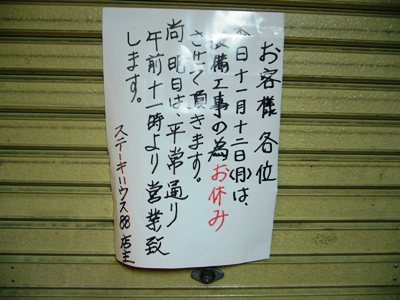 お客様各位
今日十一月十二日(月)は、
設備工事の為お休み
させて頂きます。
尚明日は、平常通り
午前十一時より営業致
します。
ステーキハウス88店主